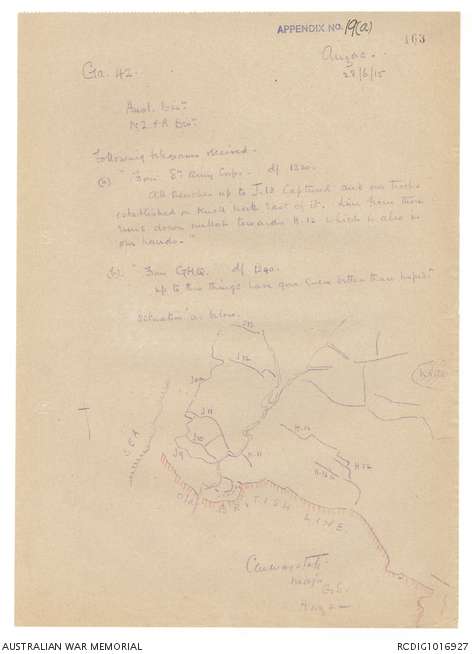 APPENDIX NO. 19(a)
163
Anzac.
28/6/15
Ga. 42.
Aust. Divn
N.Z. & A Divn
Following telegrams received.
(a) "From 8th Army Corps. d/ 1220.
All trenches up to J.12 captured and our troops
established on Knoll North East of it. Line from there
runs down nullah towards H.12 which is also in
our hands."
(b) "From GHQ. d/ 1240.
Up to this things have gone even better than hoped"
Situation as below.
J.13
J.12
J.11
J.10
J.9
H.11
H.12
SEA
Old BRITISH LINE.
Major
G.S.
Anzac
AUSTRALIAN WAR MEMORIAL
RCDIG1016927